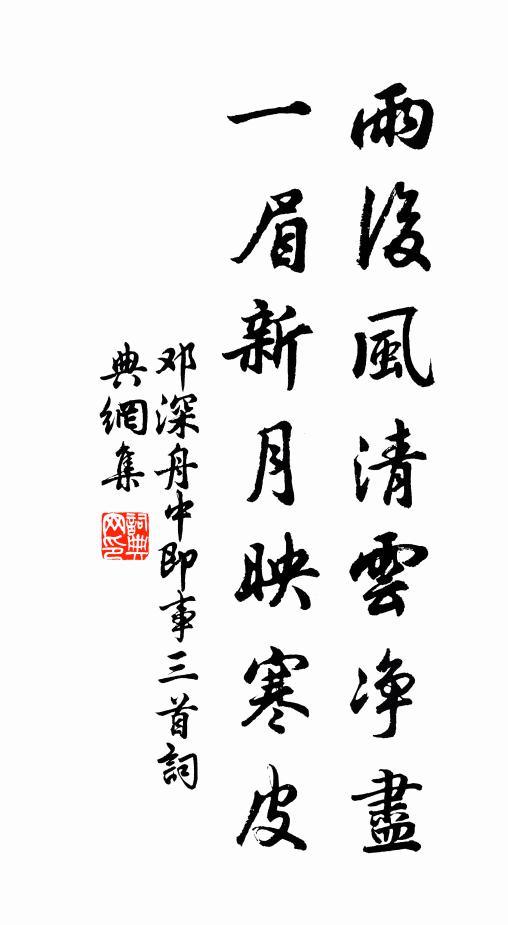 雨後風清雲净盡
一眉新月映寒皮
邓深舟中即事三首詞
典網集
詞典网印